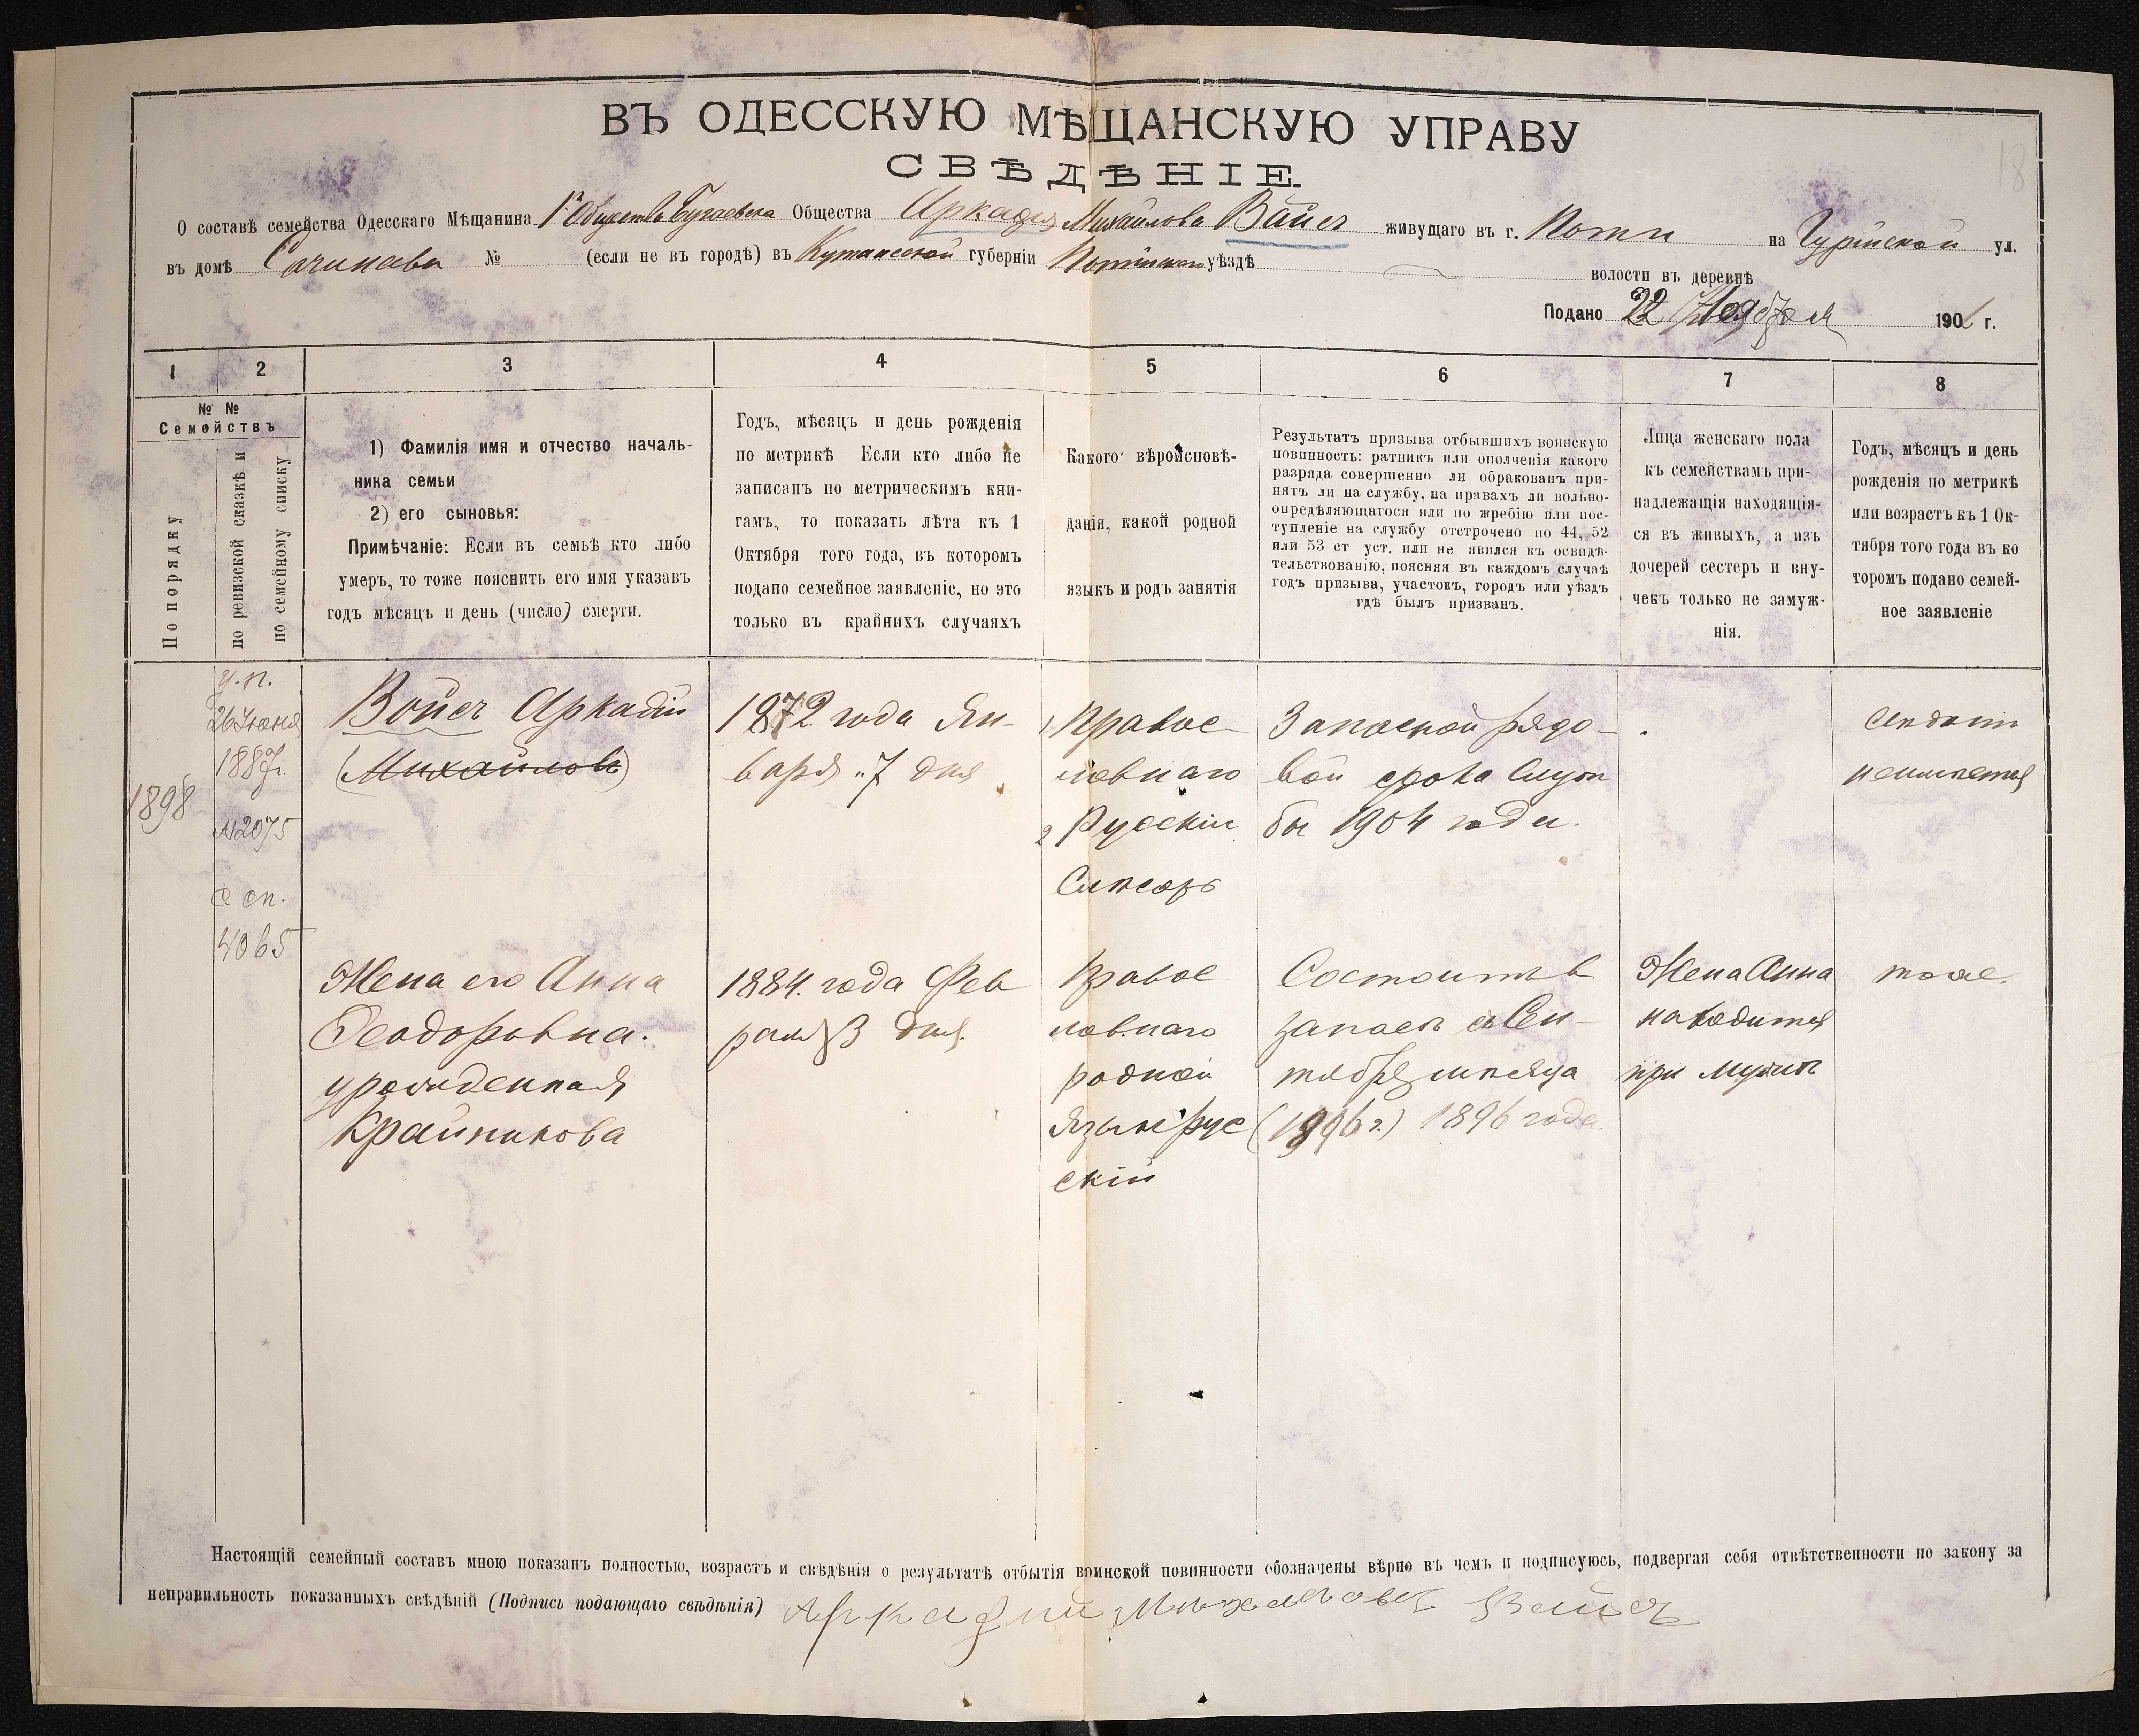 18
ВЪ ОДЕССКУЮ МѢЩАНСКУЮ УПРАВУ
СВѢДѢНІЕ.
О составѣ семейства Одесскаго Мѣщанина Общества Аркадія Михайлова Вайсъ живущаго въ г. Поти на Гурійской ул.
въ домѣ № (если не въ городѣ) въ Кутаисской губерніи уѣздѣ волости въ деревнѣ
Подано 22 Ноября 190 г.
1 2 3 4 5 6 7 8
№ №
Семействъ
По порядку
по ревизской сказкѣ и
по семейному списку
1) Фамилія имя и отчество началь-
ника семьи
2) его сыновья:
Примѣчаніе: Если въ семьѣ кто либо
умеръ, то тоже пояснить его имя указавъ
годъ мѣсяцъ и день (число) смерти.
Годъ, мѣсяцъ и день рожденія
по метрикѣ Если кто либо не
записанъ по метрическимъ кни-
гамъ, то показать лѣта къ 1
Октября того года, въ которомъ
подано семейное заявленіе, но это
только въ крайнихъ случаяхъ
Какого вѣроисповѣ-
данія, какой родной
языкъ и родъ занятія
Результатъ призыва отбывшихъ воинскую
повинность: ратникъ или ополченія какого
разряда совершенно ли обракованъ при-
нятъ ли на службу, на правахъ ли вольно-
опредѣляющагося или по жребію или пос-
тупленіе на службу отстрочено по 44, 52
или 53 ст уст. или не явился къ освидѣ-
тельствованію, поясняя въ каждомъ случаѣ
годъ призыва, участокъ, городъ или уѣздъ
гдѣ былъ призванъ.
Лица женскаго пола
къ семействамъ при-
надлежащія находящія-
ся въ живыхъ, а изъ
дочерей сестеръ и вну-
чекъ только не замуж-
нія.
Годъ, мѣсяцъ и день
рожденія по метрикѣ
или возрастъ къ 1 Ок-
тября того года въ ко
торомъ подано семей-
ное заявленіе
1898
26 Іюня
1887г.
№2075
с сп.
4065
Войсъ Аркадій
(Михайловъ)
1872 года Ян-
варя 7 дня
1 Правос-
лавнаго
2 Русскій
Слесарь
Запасной рядо-
вой срока служ
бы 1904 года.
Жена его Анна
Теодоровна.
урожденная
1884. года Фев
раля 3 дня.
Правос
лавнаго
родной
языкъ рус
скій
Состоитъ в
запасѣ съ Сен-
тября мѣсяца
(1896 г.) 1896 года.
Жена Анна
находится
при мужѣ
тоже.
Настоящій семейный составъ мною показанъ полностью, возрастъ и свѣдѣнія о результатѣ отбытія воинской повинности обозначены вѣрно въ чемъ и подписуюсь, подвергая себя отвѣтственности по закону за
неправильность показанныхъ свѣдѣній (Подпись подающаго свѣдѣнія) Аркадий Михайловъ Вейсъ